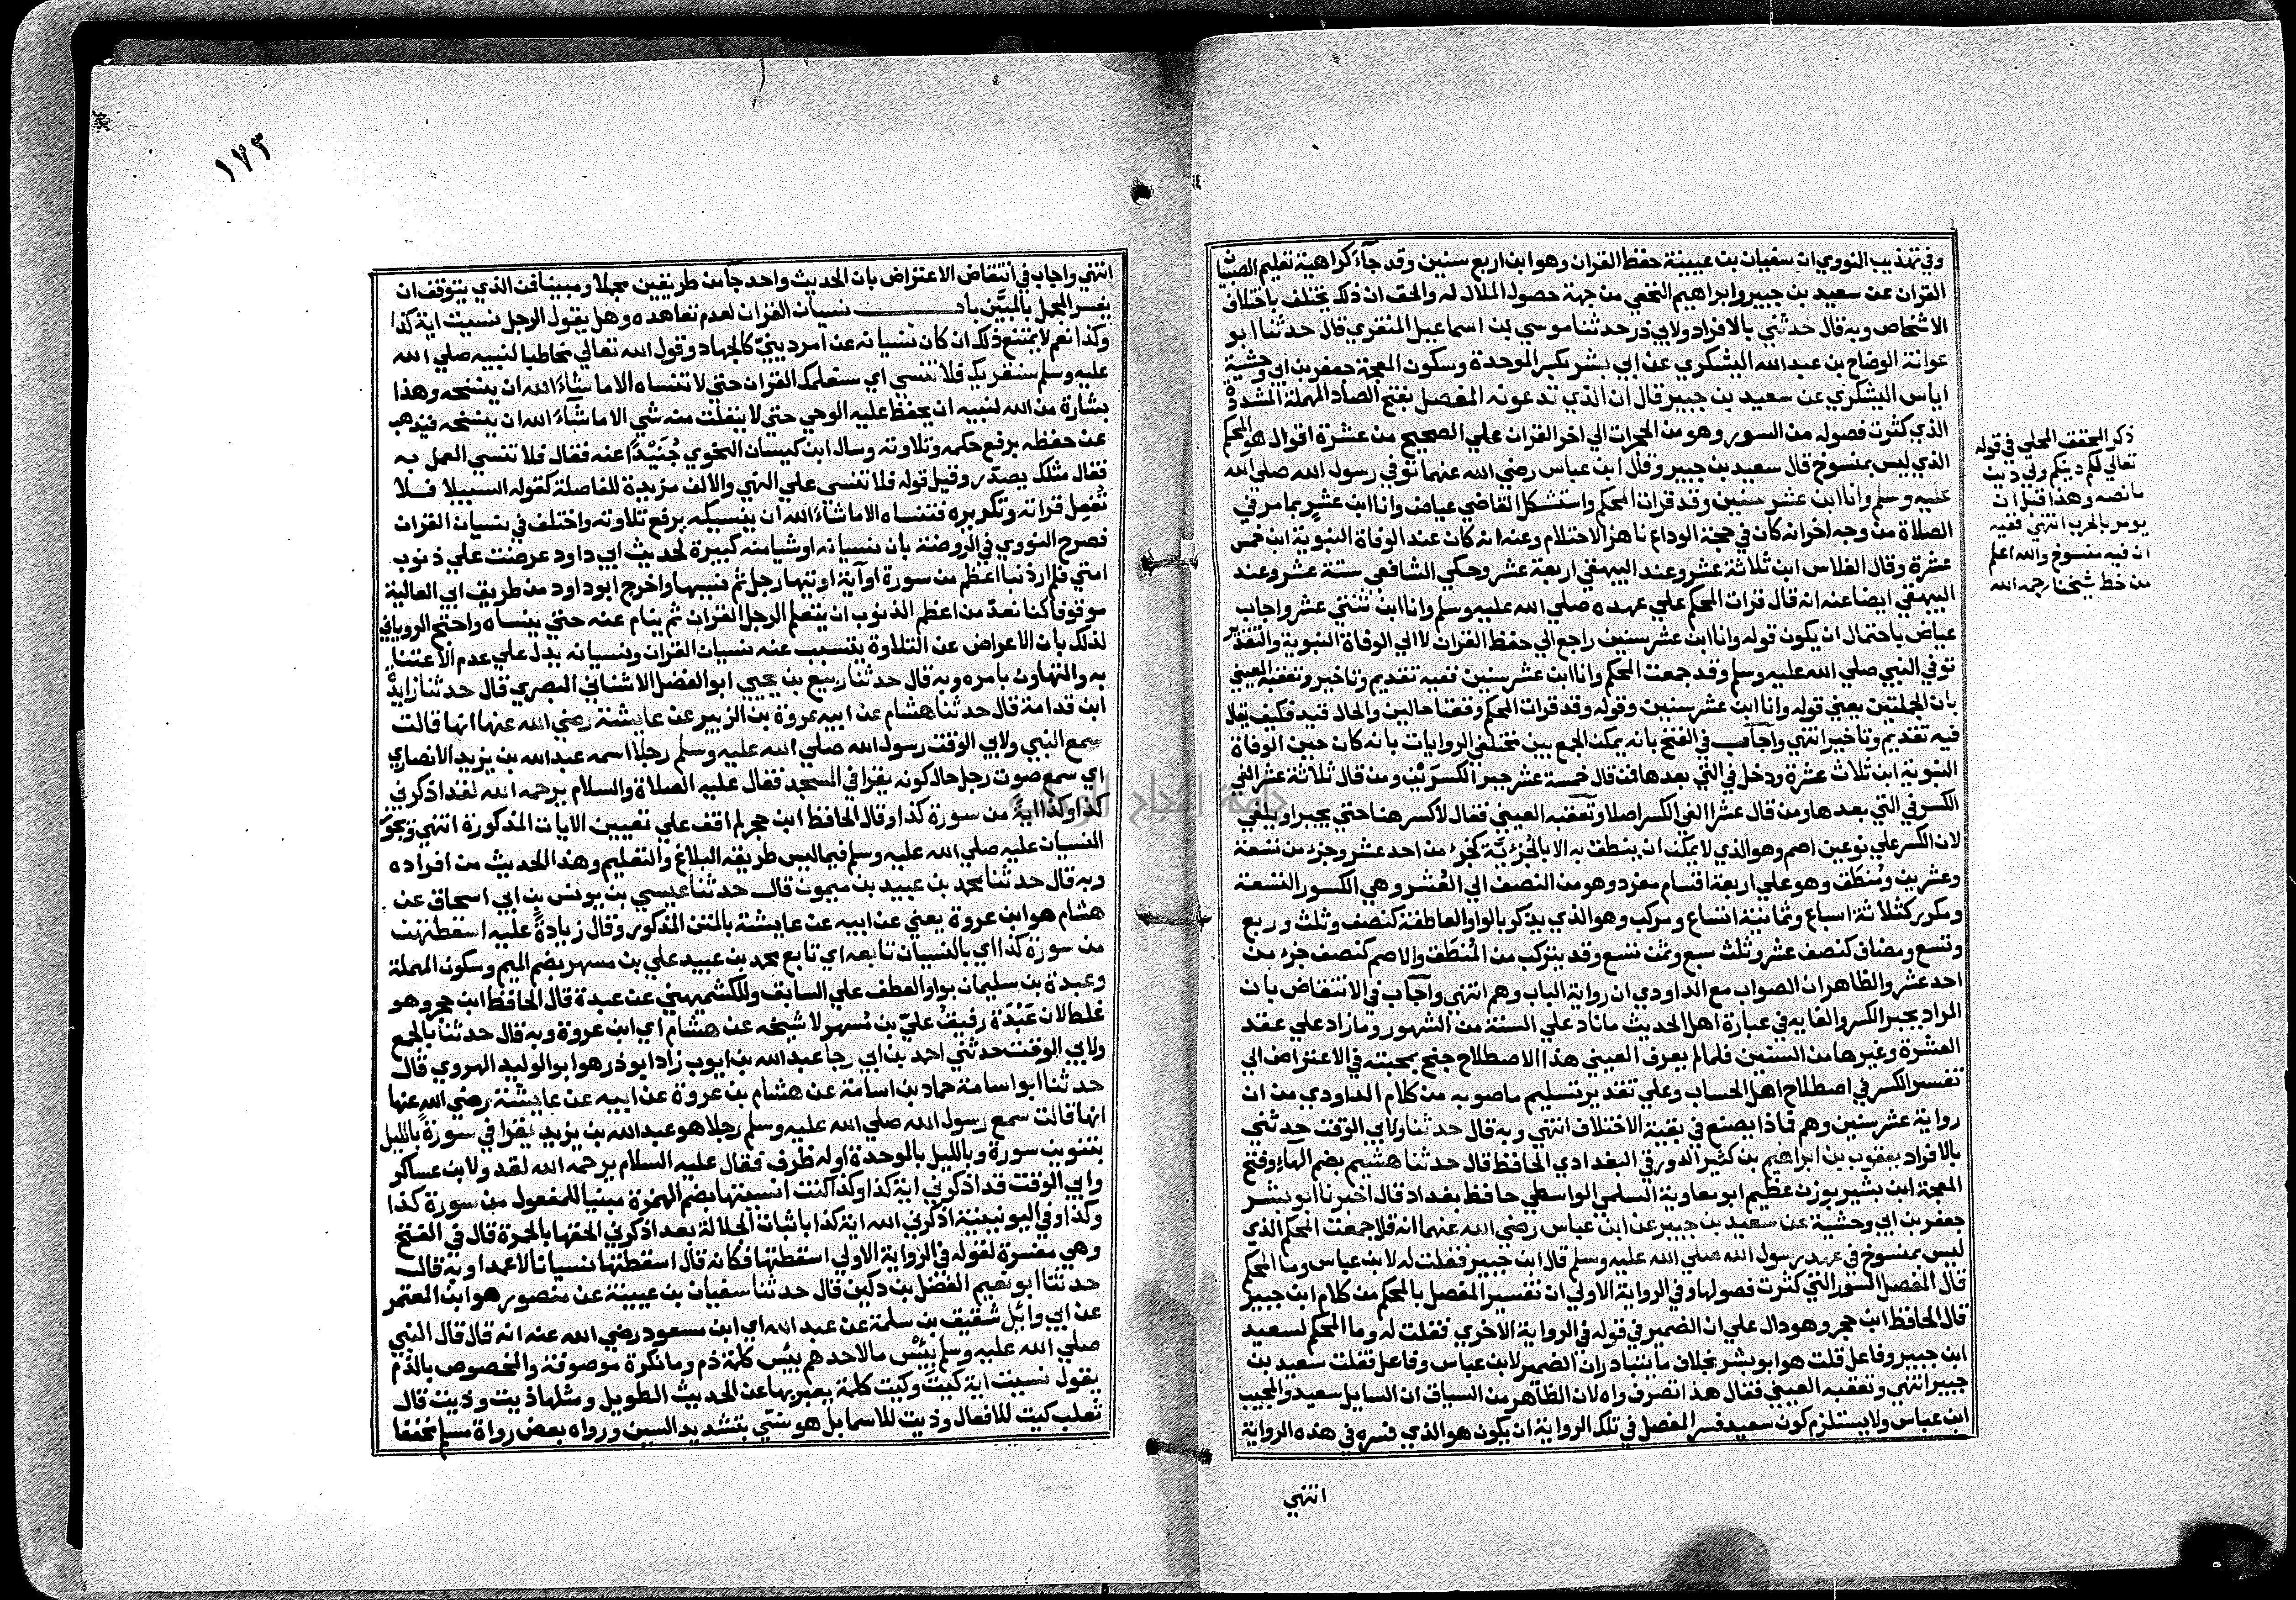 وفي تهذيب النووي ان سفيان بن عيينة حفظ القران وهو ابن اربع سنين وقد جآء كراهية تعليم الصبيان
القران عن سعيد بن جبير وابراهيم النخعي من جهة حصول الملال له والحق ان ذلك يختلف باختلاف
الاشخاص وبه قال حدثني بالافراد ولابي ذر حدثنا موسي بن اسماعيل المنقري قال حدثنا ابو
عوانة الوضاح بن عبد الله اليشكري عن ابي بشر بكسر الموحدة وسكون المعجمة جعفر بن ابي وحشية
اياس اليشكري عن سعيد بن جبير قال ان الذي تدعونه المفصل بفتح الصاد المهملة المشددة
الذي كثرت فصوله من السور وهو من الحجرات الي اخر القران علي الصحيح من عشرة اقوال هو المحكم
الذي ليس بمنسوخ قال سعيد بن جبير وقال ابن عباس رضي الله عنهما توفي رسول الله صلي الله
عليه وسلم وانا ابن عشر سنين وقد قرات المحكم واستشكل القاضي عياض وانا ابن عشر بما مر في
الصلاة من وجه اخر انه كان في حجة الوداع ناهز الاحتلام وعنه انه كان عند الوفاة النبوية ابن خمس
عشرة وقال الفلاس ابن ثلاثة عشر وعند البيهقي اربعة عشر وحكي الشافعي ستة عشر وعند
البيهقي ايضا عنه انه قال قرات المحكم علي عهده صلي الله عليه وسلم وانا ابن ثنتي عشر واجاب
عياض باحتمال ان يكون قوله وانا ابن عشر سنين راجع الي حفظ القران لا الي الوفاة النبوية والتقدير
توفي النبي صلي الله عليه وسلم وقد جمعت المحكم وانا ابن عشر سنين ففيه تقديم وتاخير وتعقبه العيني
بان الجملتين يعني قوله وانا ابن عشر سنين وقوله وقد قرات المحكم وقعتا حالين والحال قيد فكيف يقال
فيه تقديم وتاخير انتهي واجاب في الفتح بانه يمكن الجمع بين مختلفي الروايات بانه كان حين الوفاة
النبوية ابن ثلاث عشرة ودخل في التي بعدها فمن قال خمسة عشر جبر الكسرين ومن قال ثلاثة عشر الغي
الكسر في التي بعدها ومن قال عشرا الغي الكسر اصلا وتعقبه العيني فقال لا كسر هنا حتي يجبر او يلغي
لان الكسر علي نوعين اصم وهو الذي لا يمكن ان ينطق به الا بالجزئية كجزء من احد عشر وجزء من تسعة
وعشرين ومنطق وهو علي اربعة اقسام مفرد وهو من النصف الي العشر وهي الكسور التسعة
ومكرر كثلاثة اسباع وثمانية اتساع ومركب وهو الذي يذكر بالواو العاطفة كنصف وثلث وربع
وتسع ومضاف كنصف عشر وثلث سبع وثمن تسع وقد يتركب من المنطق والاصم كنصف جزء من
احد عشر والظاهر ان الصواب مع الداودي ان رواية الباب وهم انتهي واجاب في الانتقاض بان
المراد بجبر الكسر والغايه في عبارة اهل الحديث ما زاد علي السنة من الشهور وما زاد علي عقد
العشرة وغيرها من السنين فلما لم يعرف العيني هذا الاصطلاح جنح بمحبته في الاعتراض الي
تفسير الكسر في اصطلاح اهل الحساب وعلي تقدير تسليم ما صوبه من كلام الداودي من ان
رواية عشر سنين وهم فماذا يصنع في بقية الاختلاف انتهي وبه قال حدثنا ولابي الوقت حدثني
بالافراد يعقوب بن ابراهيم بن كثير الدورقي البغدادي الحافظ قال حدثنا هشيم بضم الهاء وفتح
المعجمة ابن بشير بوزن عظيم ابو معاوية السلمي الواسطي حافظ بغداد قال اخبرنا ابو بشر
جعفر بن ابي وحشية عن سعيد بن جبير عن ابن عباس رضي الله عنهما انه قال جمعت المحكم الذي
ليس بمنسوخ في عهد رسول الله صلي الله عليه وسلم قال ابن جبير فقلت له لابن عباس وما المحكم
قال المفصل السور التي كثرت فصولها وفي الرواية الاولي ان تفسير المفصل بالمحكم من كلام ابن جبير
قال الحافظ ابن حجر وهو دال علي ان الضمير في قوله في الرواية الاخري فقلت له وما المحكم لسعيد
ابن جبير وفاعل قلت هو ابو بشر بخلاف ما يتبادر ان الضمير لابن عباس وفاعل فقلت سعيد بن
جبير انتهي وتعقبه العيني فقال هذا تصرف واه لان الظاهر من السياق ان السايل سعيد والمجيب
ابن عباس ولا يستلزم كون سعيد فسر المفصل في تلك الرواية ان يكون هو الذي فسره في هذه الرواية
انتهي
ذكر المحقق المحلي في قوله
تعالي لكم دينكم ولي دين
ما نصه وهذا قبل ان
يومر بالحرب انتهي ففيه
ان فيه منسوخ والله اعلم
من خط شيخنا رحمه الله
١٧٣
انتهي واجاب في انتقاض الاعتراض بان الحديث واحد جآ من طريقين مجملا ومبينا فمن الذي يتوقف ان
يفسر المجمل بالمبين باب نسيان القران لعدم تعاهده وهل يقول الرجل نسيت اية كذا
وكذا نعم لا يمتنع ذلك ان كان نسيانه عن امر ديني كالجهاد وقول الله تعالي مخاطبا لنبيه صلي الله
عليه وسلم سنقريك فلا تنسي اي سنعلمك القران حتي لا تنساه الا ما شآء الله ان ينسخه وهذا
بشارة من الله لنبيه ان يحفظ عليه الوحي حتي لا ينفلت منه شي الا ما شآء الله ان ينسخه فيذهب
عن حفظه برفع حكمه وتلاوته وسال ابن كيسان النحوي جنيدا عنه فقال فلا تنسي العمل به
فقال مثلك يصدر وقيل قوله فلا تنسي علي النهي والالف مزيدة للفاصلة كقوله السبيلا فلا
تغفل قراته وتكريره فتنساه الا ما شآء الله ان ينسيكه برفع تلاوته واختلف في نسيان القران
فصرح النووي في الروضة بان نسيانه او شيا منه كبيرة لحديث ابي داود عرضت علي ذنوب
امتي فلم ار ذنبا اعظم من سورة او آية اوتيها رجل ثم نسيها واخرج ابو داود من طريق ابي العالية
موقوفا كنا نعد من اعظم الذنوب ان يتعلم الرجل القران ثم ينام عنه حتي ينساه واحتج الروياني
لذلك بان الاعراض عن التلاوة يتسبب عنه نسيان القران ونسيانه يدل علي عدم الاعتنا
به والتهاون بامره وبه قال حدثنا ربيع بن يحيي ابو الفضل الاشناني البصري قال حدثنا زايدة
ابن قدامة قال حدثنا هشام عن ابيه عروة بن الزبير عن عايشة رضي الله عنها انها قالت
سمع النبي ولابي الوقت رسول الله صلي الله عليه وسلم رجلا اسمه عبد الله بن يزيد الانصاري
اي سمع صوت رجل حال كونه يقرا في المسجد فقال عليه الصلاة والسلام يرحمه الله لقد اذكرني
كذا وكذا اية من سورة كذا وقال الحافظ ابن حجر لم اقف علي تعيين الايات المذكورة انتهي ويجوز
النسيان عليه صلي الله عليه وسلم فيما ليس طريقه البلاغ والتعليم وهذا الحديث من افراده
وبه قال حدثنا محمد بن عبيد بن ميمون قال حدثنا عيسي بن يونس بن ابي اسحاق عن
هشام هو ابن عروة يعني عن ابيه عن عايشة بالمتن المذكور وقال زيادة عليه اسقطتهن
من سورة كذا اي بالنسيان تابعه اي تابع محمد بن عبيد علي بن مسهر بضم الميم وسكون المهملة
وعبدة بن سليمان بواو العطف علي السابق وللكشميهني عن عبدة قال الحافظ ابن حجر وهو
غلط لان عبدة رفيق علي بن مسهر لا شيخه عن هشام اي ابن عروة وبه قال حدثنا بالجمع
ولابي الوقت حدثني احمد بن ابي رجا عبد الله بن ايوب زاد ابو ذر هو ابو الوليد الهروي قال
حدثنا ابو اسامة حماد بن اسامة عن هشام بن عروة عن ابيه عن عايشة رضي الله عنها
انها قالت سمع رسول الله صلي الله عليه وسلم رجلا هو عبد الله بن يزيد يقرا في سورة بالليل
بتنوين سورة وبالليل بالموحدة اوله ظرف فقال عليه السلام يرحمه الله لقد ولابن عساكر
وابي الوقت قد اذكرني اية كذا وكذا كنت انسيتها بضم الهمزة مبنيا للمفعول من سورة كذا
وكذا وفي اليونينية اذكرني الله اية كذا باثبات الجلالة بعد اذكرني الحقها بالحمرة قال في الفتح
وهي مفسرة لقوله في الرواية الاولي اسقطتها فكانه قال اسقطتها نسيانا لا عمدا وبه قال
حدثنا ابو نعيم الفضل بن دكين قال حدثنا سفيان بن عيينة عن منصور هو ابن المعتمر
عن ابي وايل شقيق بن سلمة عن عبد الله اي ابن مسعود رضي الله عنه انه قال قال النبي
صلي الله عليه وسلم بئس ما لاحدهم بيس كلمة ذم وما نكرة موصوفة والمخصوص بالذم
يقول نسيت اية كيت وكيت كلمة يعبر بها عن الحديث الطويل ومثلها ذيت وذيت قال
ثعلب كيت للافعال وذيت للاسما بل هو نسي بتشديد السين ورواه بعض رواة مسلم مخففا